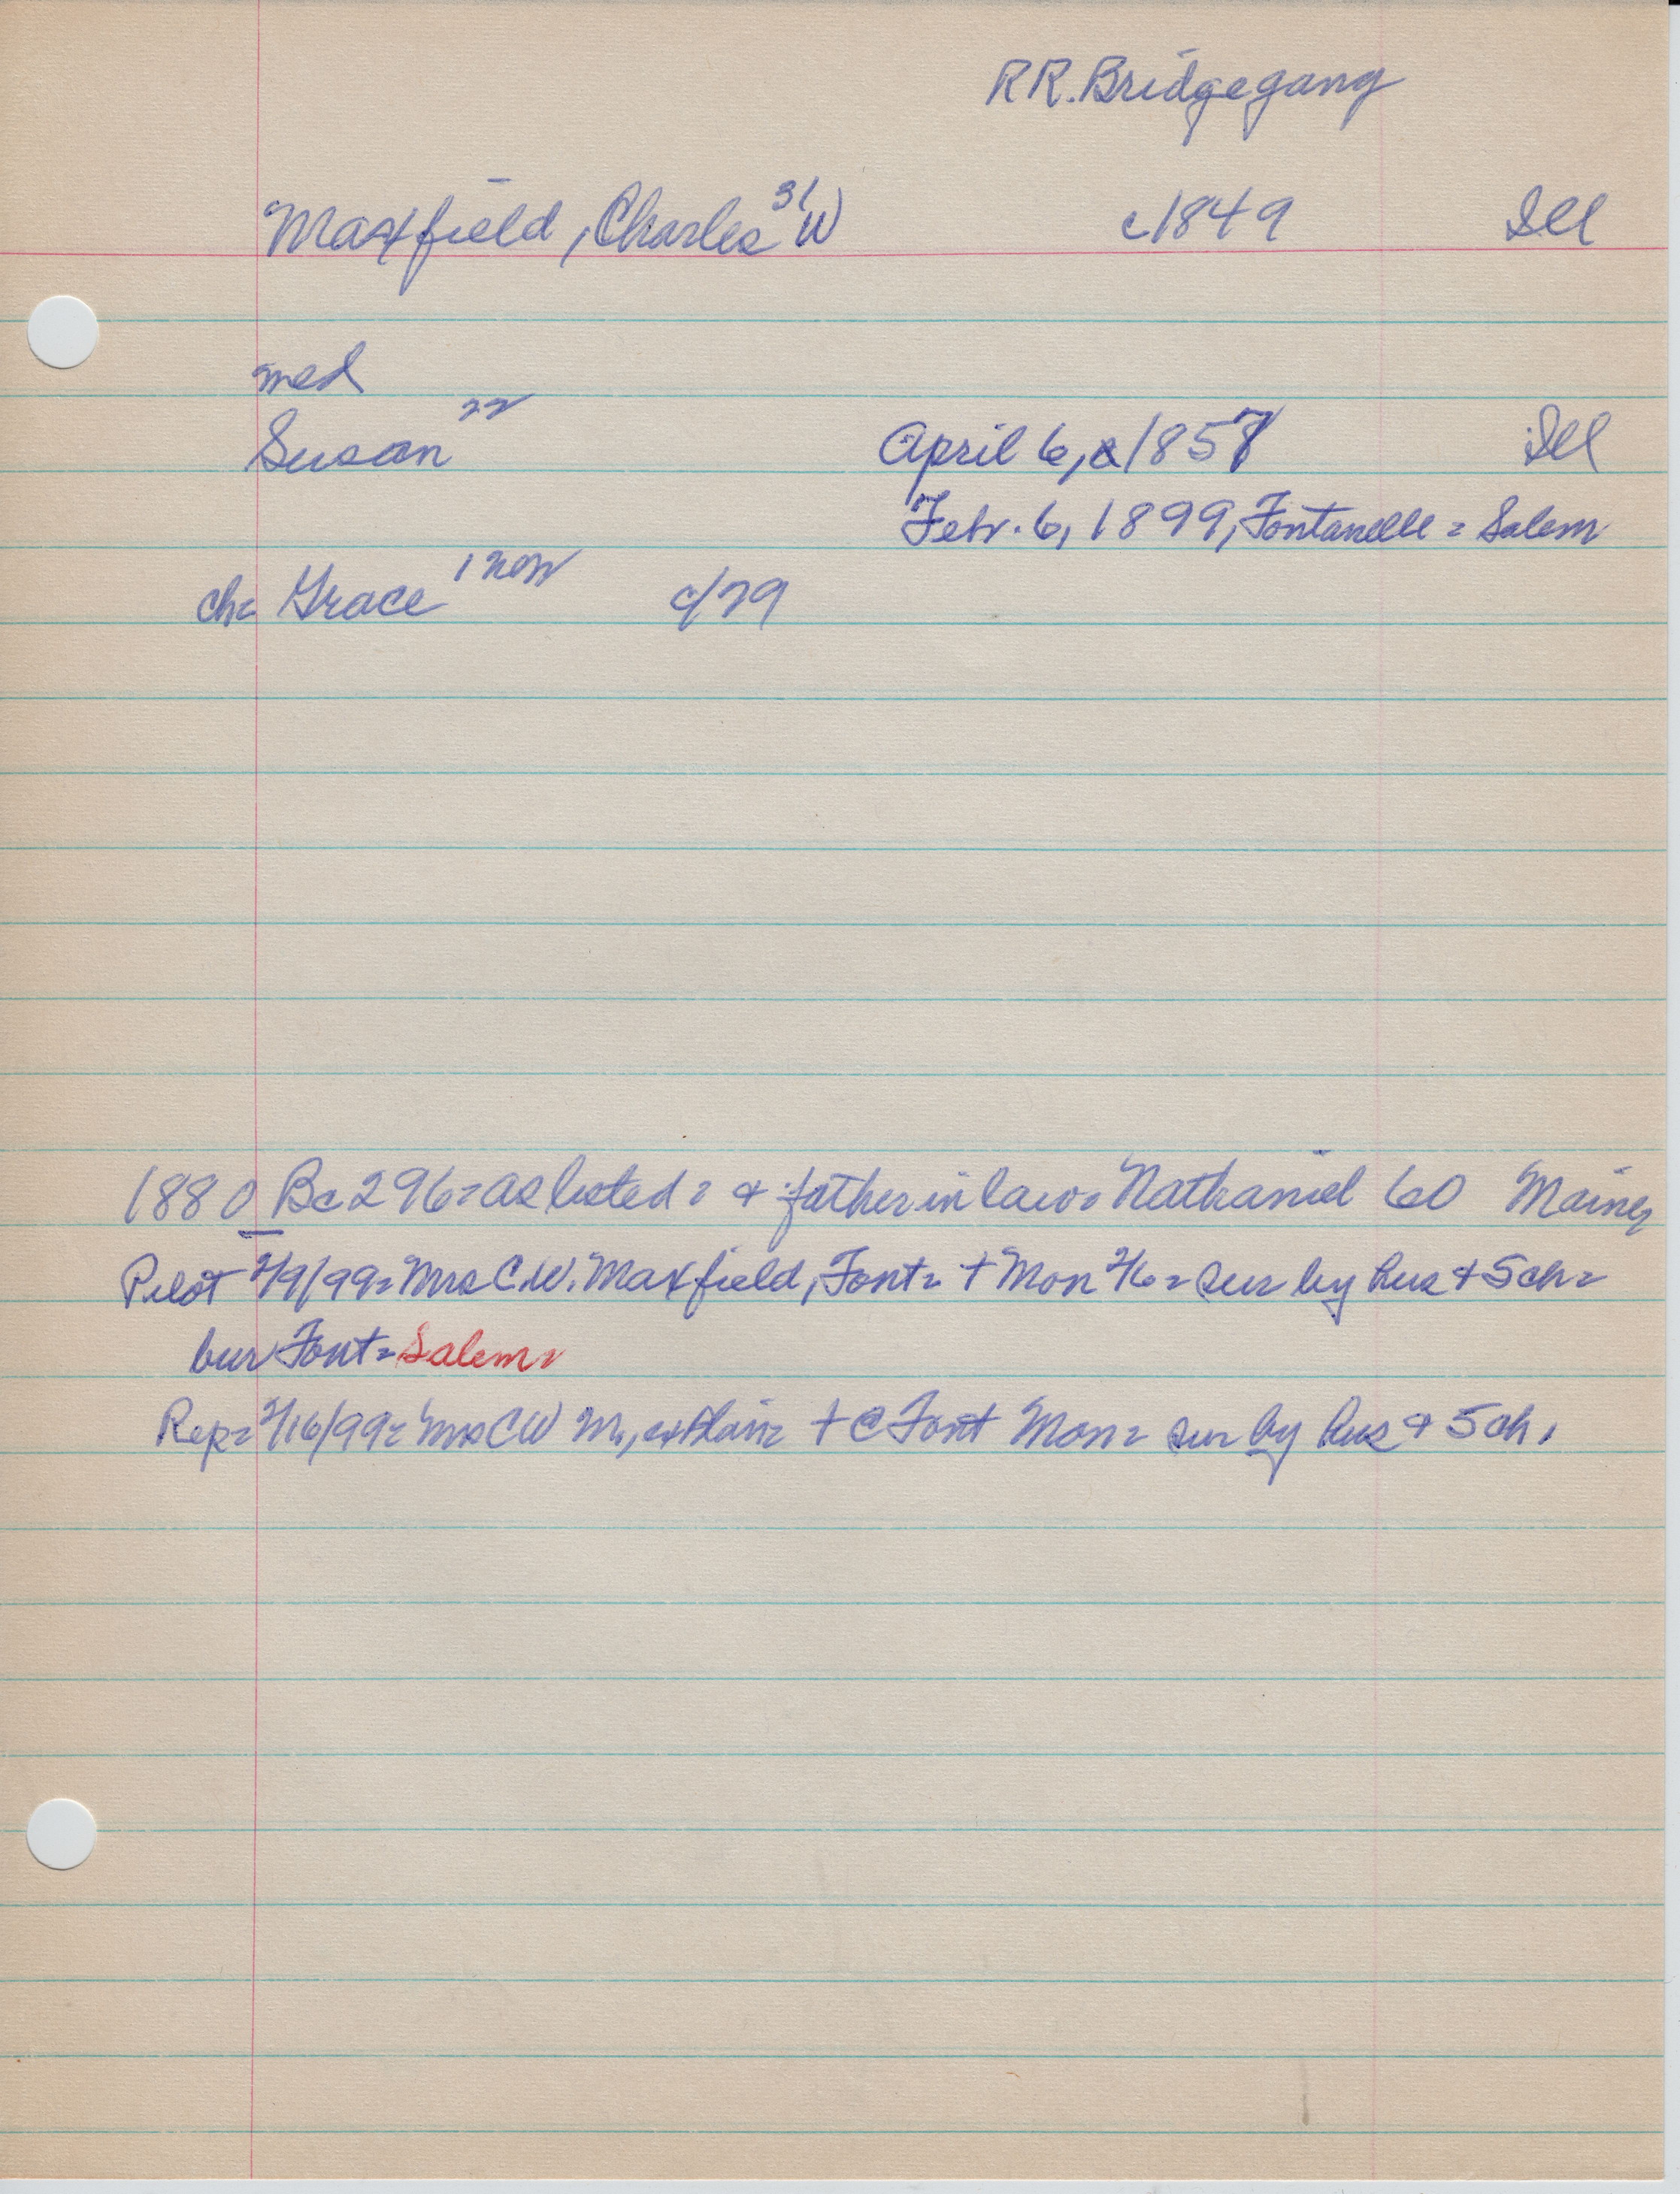 RR. Bridgegang
Maxfield, Charles 31 W c/1849 Ill
med
Susan 22 April 6, 1857 Ill
Febr. 6, 1899, Fontanelle = Salem
ch= Grace 1 non c/79
1880 Bc 296= as listed= & father in law= Nathaniel 60 Maine
Pilot 2/9/99= Mrs C.W. Maxfield, Font= + Mon 2/6= sur by hus & 5 ch=
bur Font= Salem=
Rep= 2/16/99= Mrs CW M., ex Blair= + @ Font Mon= sur by hus & 5 ch.